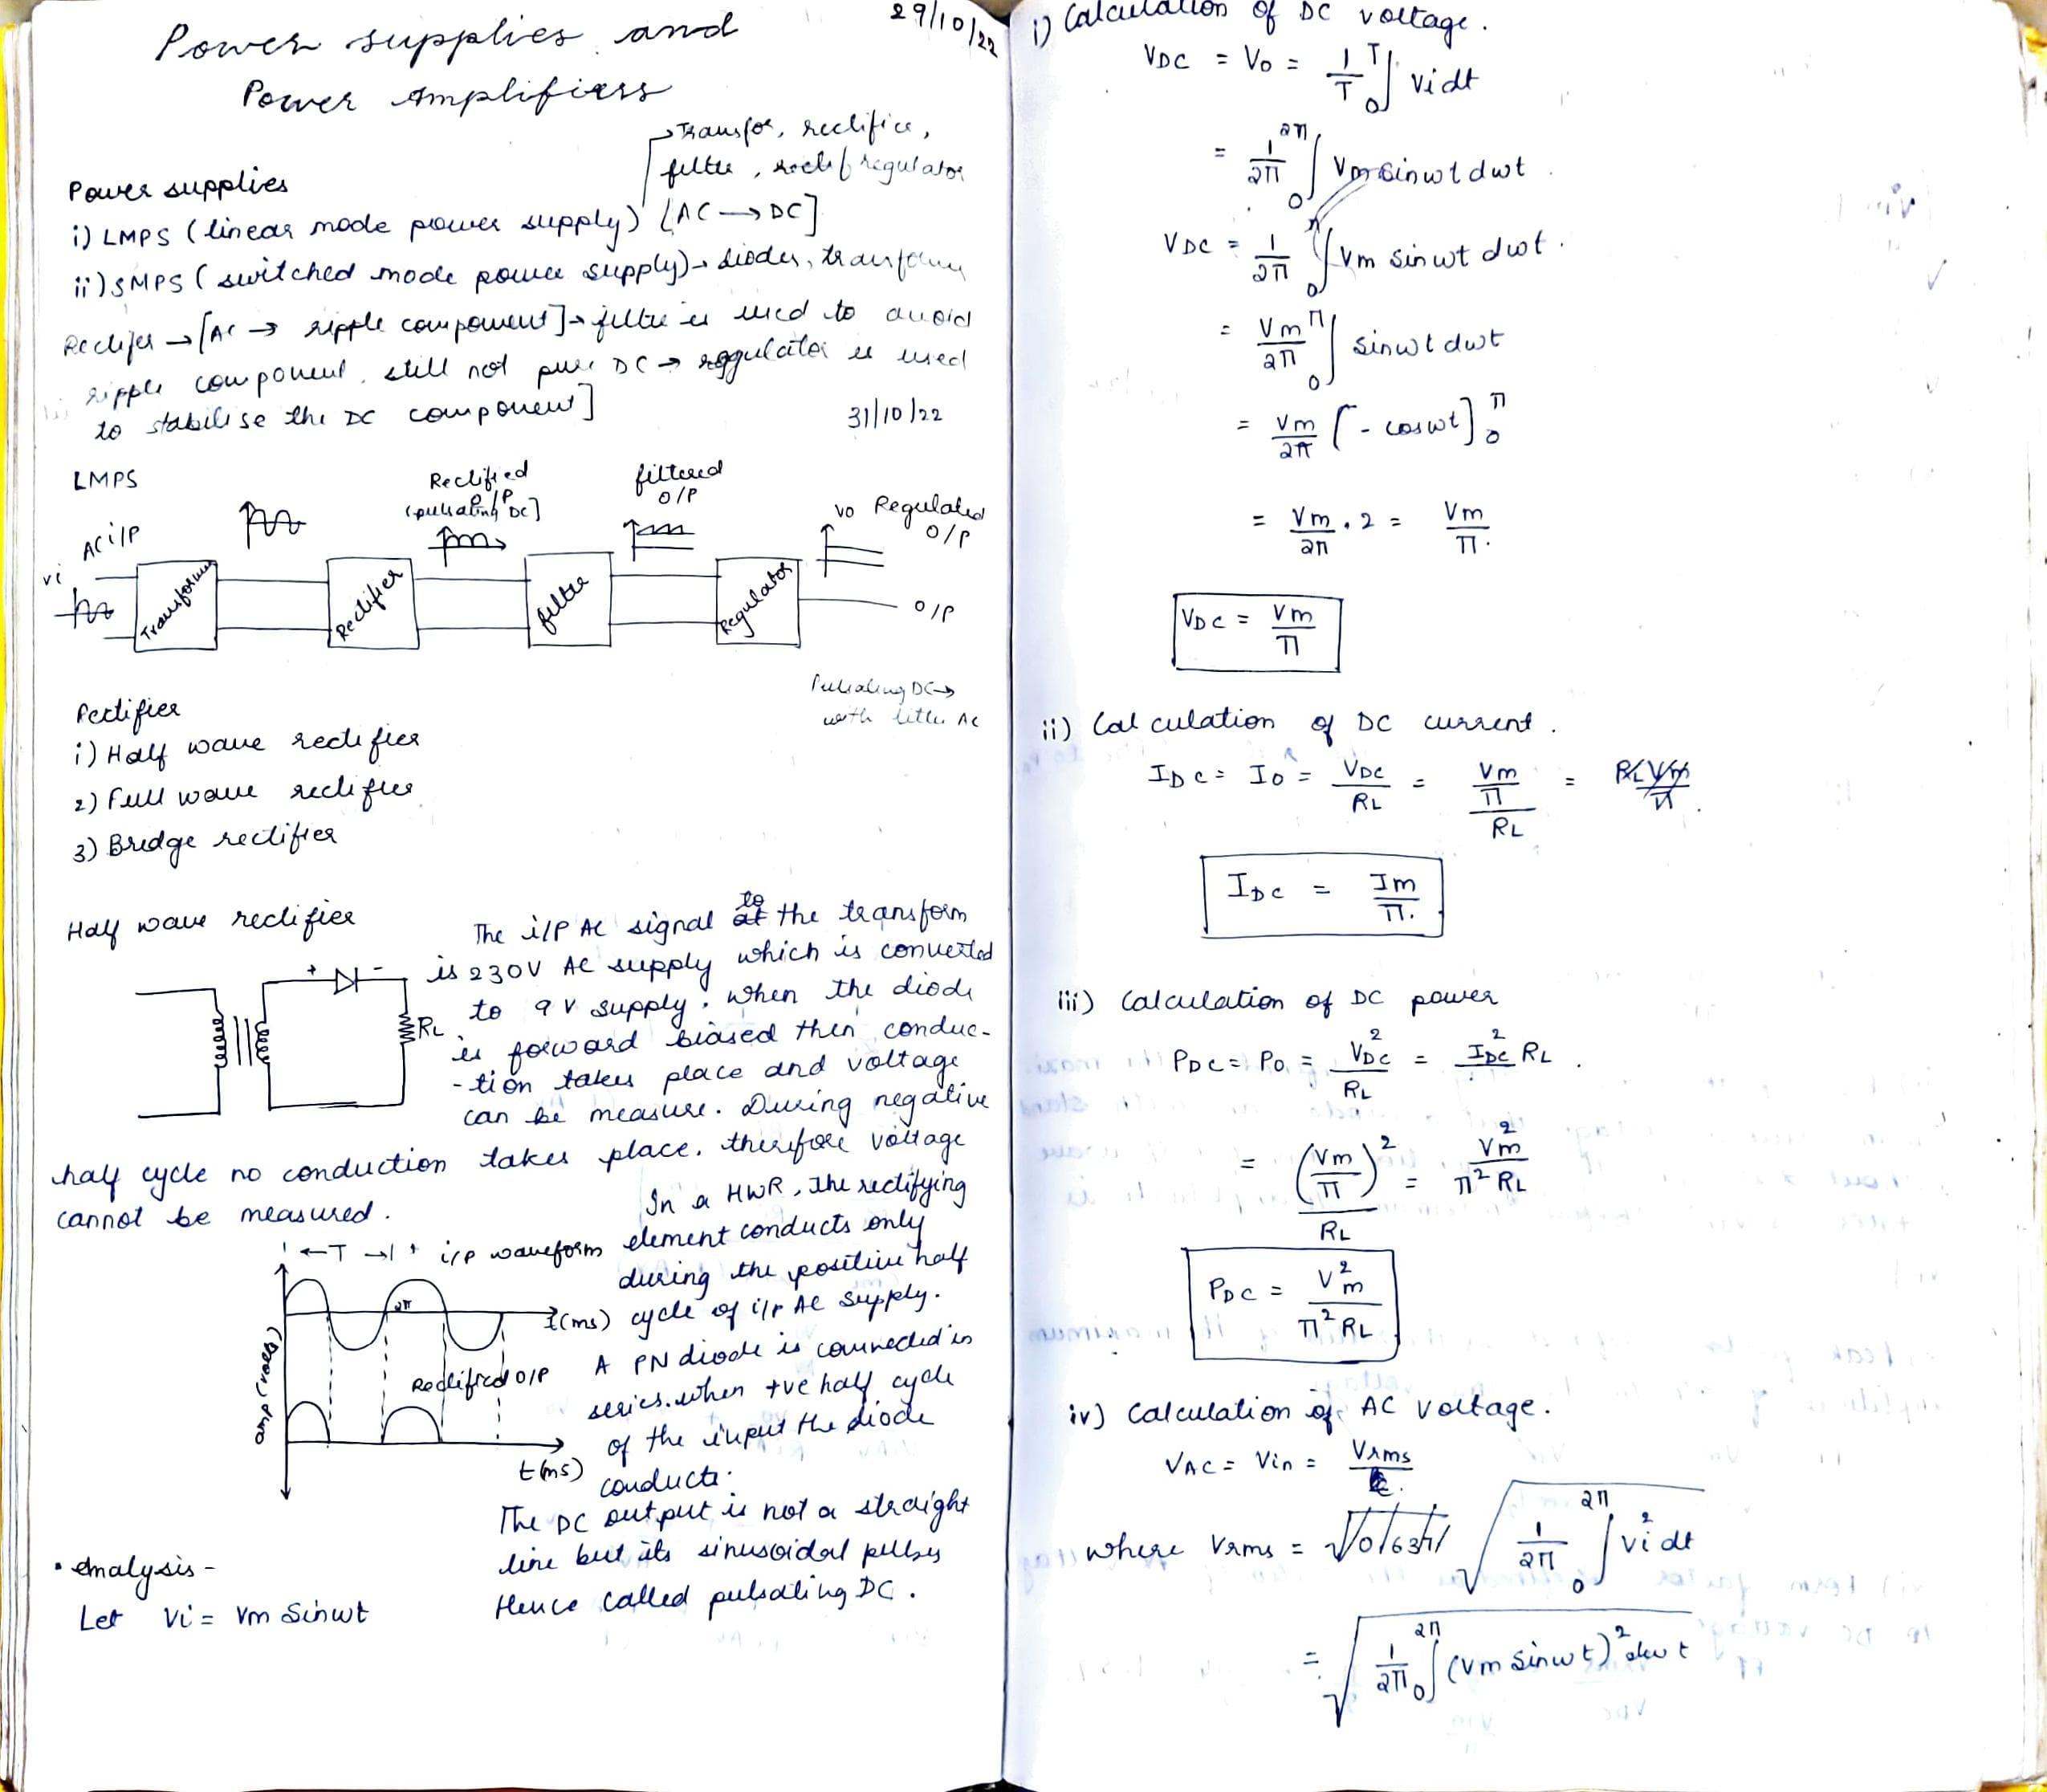 29/10/22
Power supplies and
Power Amplifiers
Power supplies
→ Transfor, rectifier,
filter, regulator
i) LMPS (linear mode power supply) [AC → DC]
ii) SMPS (switched mode power supply) → diodes, transformer
Rectifier → [AC → ripple component] → filter is used to avoid
ripple component, still not pure DC → regulator is used
to stabilise the DC component]
31/10/22
LMPS
Rectified O/P
(pulsating DC]
filtered
O/P
vo Regulated
O/P
AC i/P
vi
Transformer
Rectifier
filter
Regulator
O/P
Pulsating DC →
with little AC
Rectifier
i) Half wave rectifier
2) Full wave rectifier
3) Bridge rectifier
Half wave rectifier
+ -
RL
The i/P AC signal to the transform
is 230V AC supply which is converted
to 9V supply. When the diode
is forward biased then conduc-
-tion takes place and voltage
can be measure. During negative
half cycle no conduction takes place. therefore voltage
cannot be measured.
In a HWR, the rectifying
element conducts only
during the positive half
cycle of i/P AC supply.
A PN diode is connected in
series. when +ve half cycle
of the input the diode
conducts.
The DC output is not a straight
line but its sinusoidal pulses
Hence called pulsating DC.
← T → i/P waveform
2π
t(ms)
Rectified O/P
t(ms)
• Analysis -
Let Vi = Vm Sinwt
i) Calculation of DC voltage.
VDC = Vo = 1/T ∫₀ᵀ vi dt
= 1/2π ∫₀²π Vm sinwt dwt
VDC = 1/2π ∫₀π Vm sinwt dwt.
= Vm/2π ∫₀π sinwt dwt
= Vm/2π [- coswt]₀π
= Vm/2π . 2 = Vm/π.
VDC = Vm/π
ii) Calculation of DC current.
IDC = Io = VDC/RL = Vm/π / RL = RLVm/π.
IDC = Im/π.
iii) Calculation of DC power
PDC = Po = VDC²/RL = IDC² RL.
= (Vm/π)² / RL = Vm²/π² RL
PDC = Vm²/π² RL
iv) Calculation of AC voltage.
VAC = Vin = Vrms
where Vrms = √ 1/2π ∫₀²π vi² dt
= √ 1/2π ∫₀²π (Vm Sinwt)² dwt